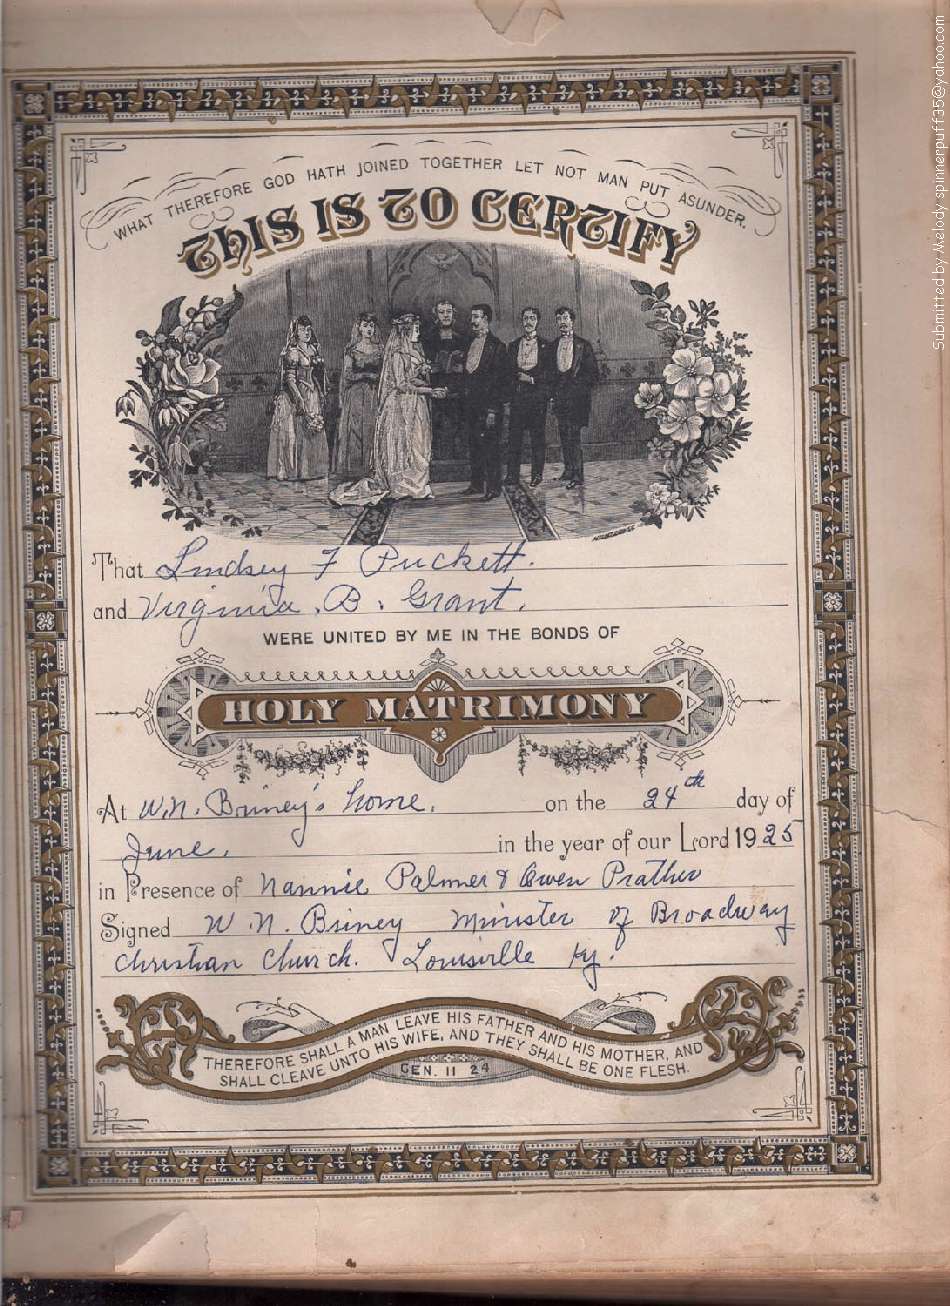 WHAT THEREFORE GOD HATH JOINED TOGETHER LET NOT MAN PUT ASUNDER.
THIS IS TO CERTIFY
That Lindsey F Puckett.
and Virginia . B . Grant.
WERE UNITED BY ME IN THE BONDS OF
HOLY MATRIMONY
At W.N. Briney's home. on the 24th day of
June. in the year of our Lord 1925
in Presence of Nannie Palmer & Owen Prather
Signed W. N. Briney Minister of Broadway
Christian Church. Louisville Ky.
THEREFORE SHALL A MAN LEAVE HIS FATHER AND HIS MOTHER, AND
SHALL CLEAVE UNTO HIS WIFE, AND THEY SHALL BE ONE FLESH.
GEN. II 24
Submitted by Melody spinnerpuff35@yahoo.com